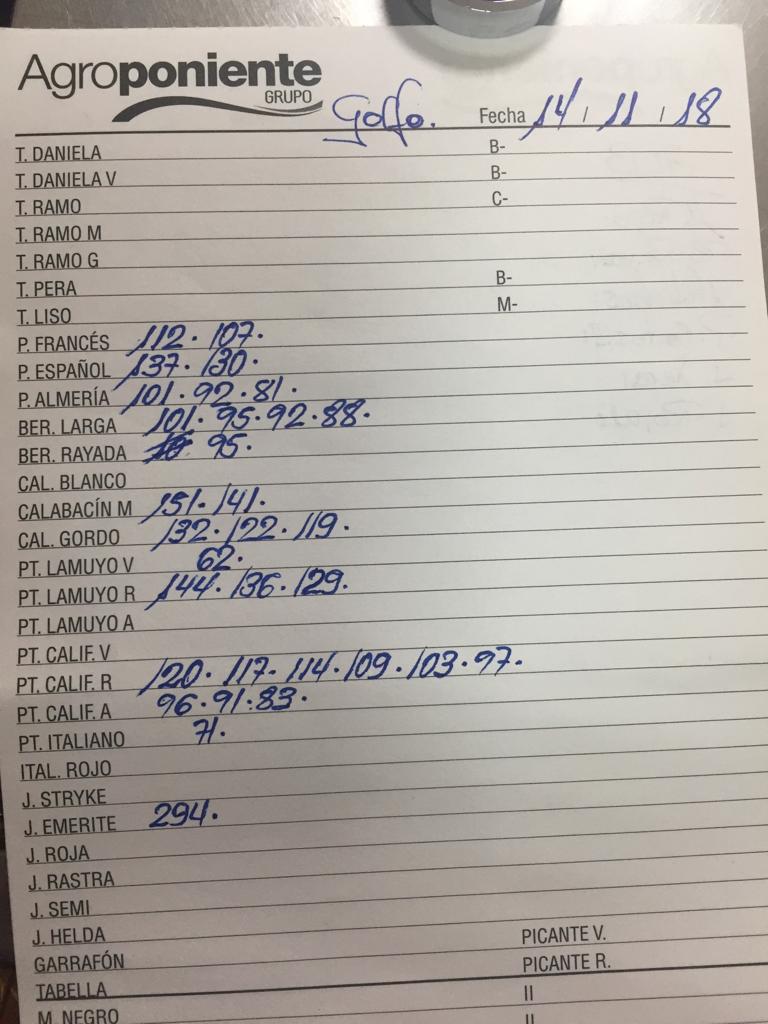 Agroponiente
GRUPO
Golfo. Fecha 14 / 11 / 18
T. DANIELA B-
T. DANIELA V B-
T. RAMO C-
T. RAMO M
T. RAMO G
T. PERA B-
T. LISO M-
P. FRANCÉS 112. 107.
P. ESPAÑOL 137. 130.
P. ALMERÍA 101. 92. 81.
BER. LARGA 101. 95. 92. 88.
BER. RAYADA 95.
CAL. BLANCO
CALABACÍN M 151. 141.
CAL. GORDO 132. 122. 119.
PT. LAMUYO V 62.
PT. LAMUYO R 144. 136. 129.
PT. LAMUYO A
PT. CALIF. V
PT. CALIF. R 120. 117. 114. 109. 103. 97.
PT. CALIF. A 96. 91. 83.
PT. ITALIANO 71.
ITAL. ROJO
J. STRYKE
J. EMERITE 294.
J. ROJA
J. RASTRA
J. SEMI
J. HELDA PICANTE V.
GARRAFÓN PICANTE R.
TABELLA II
M. NEGRO II